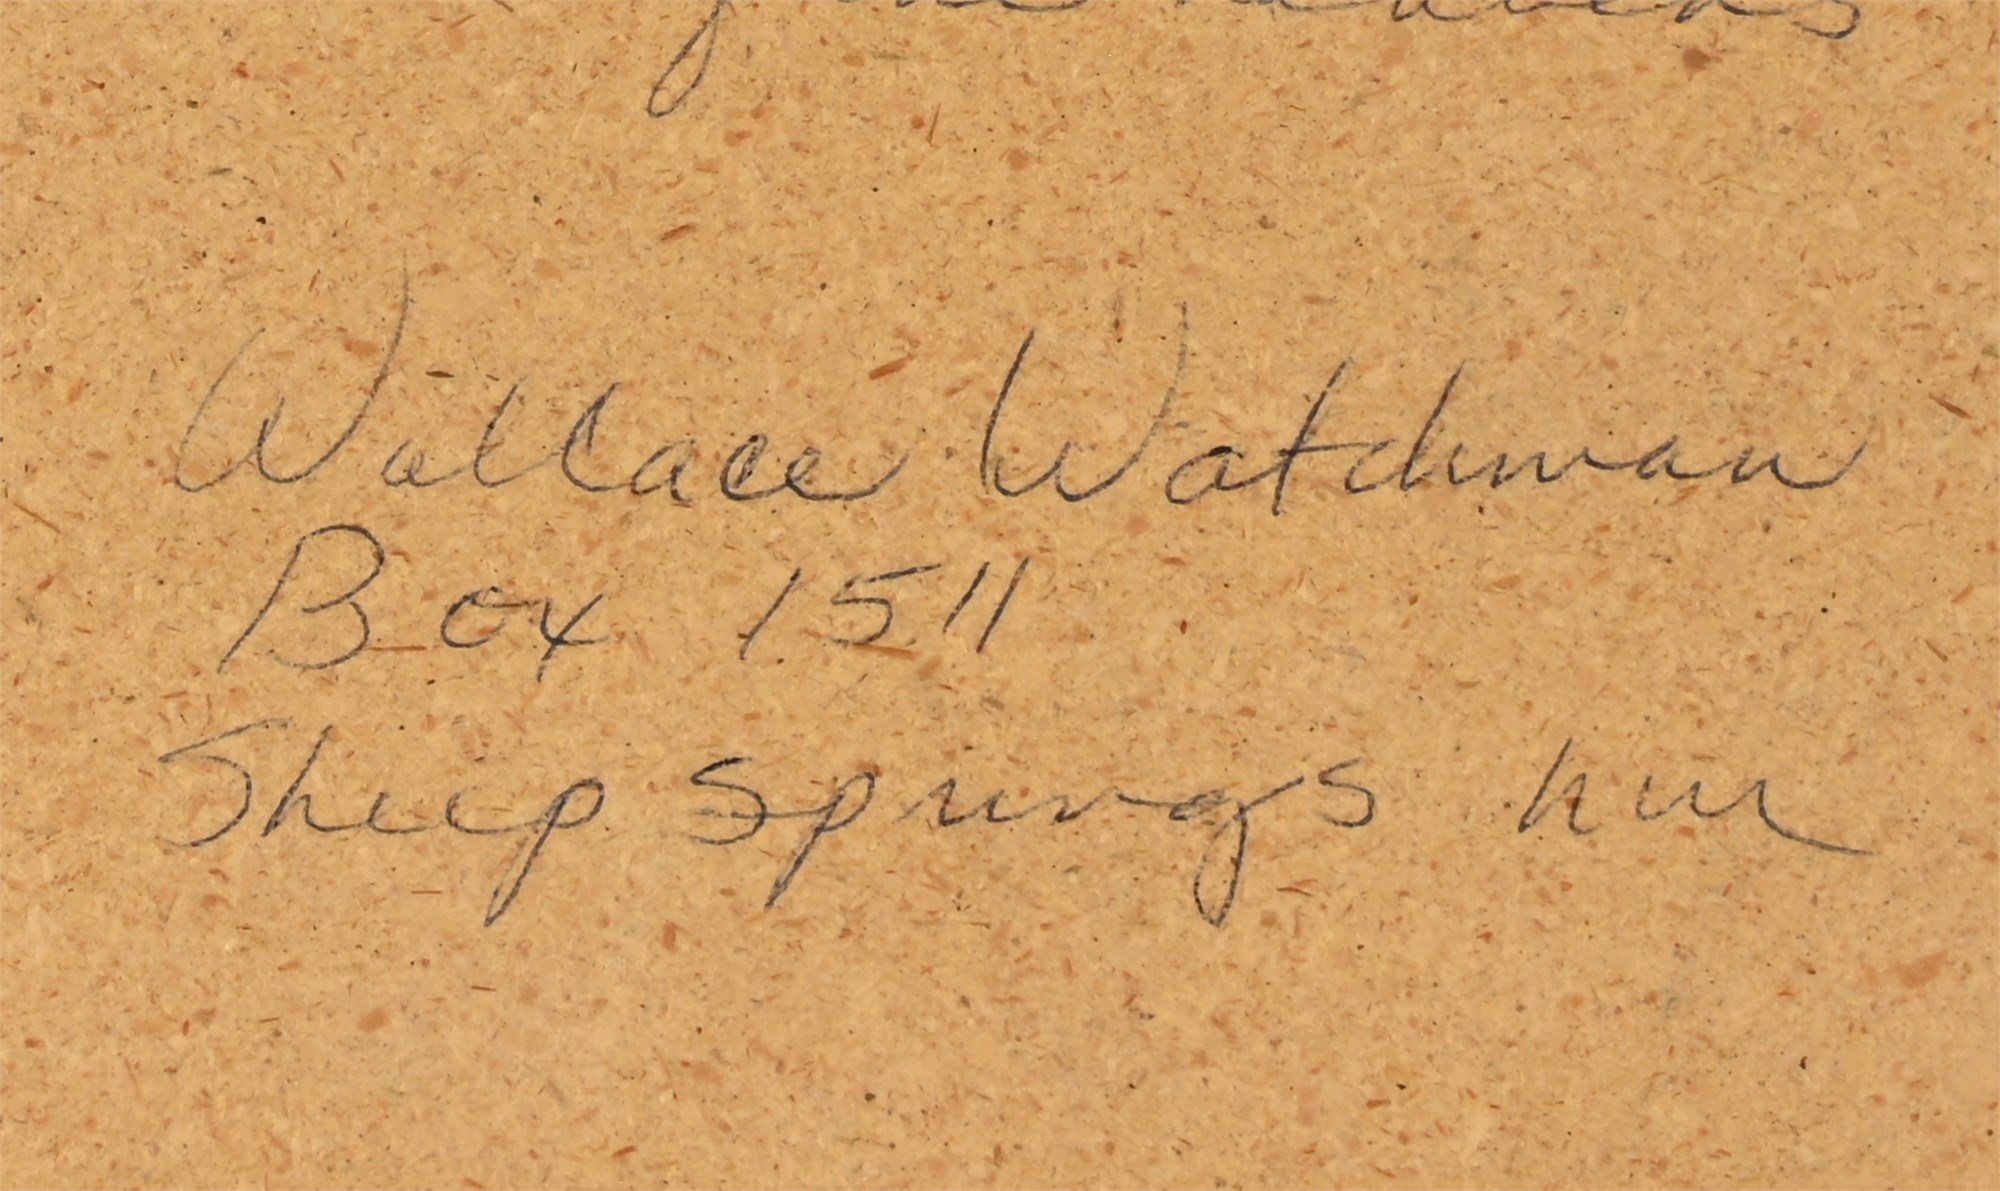 Wallace Watchman
Box 1511
Sheep Springs nm